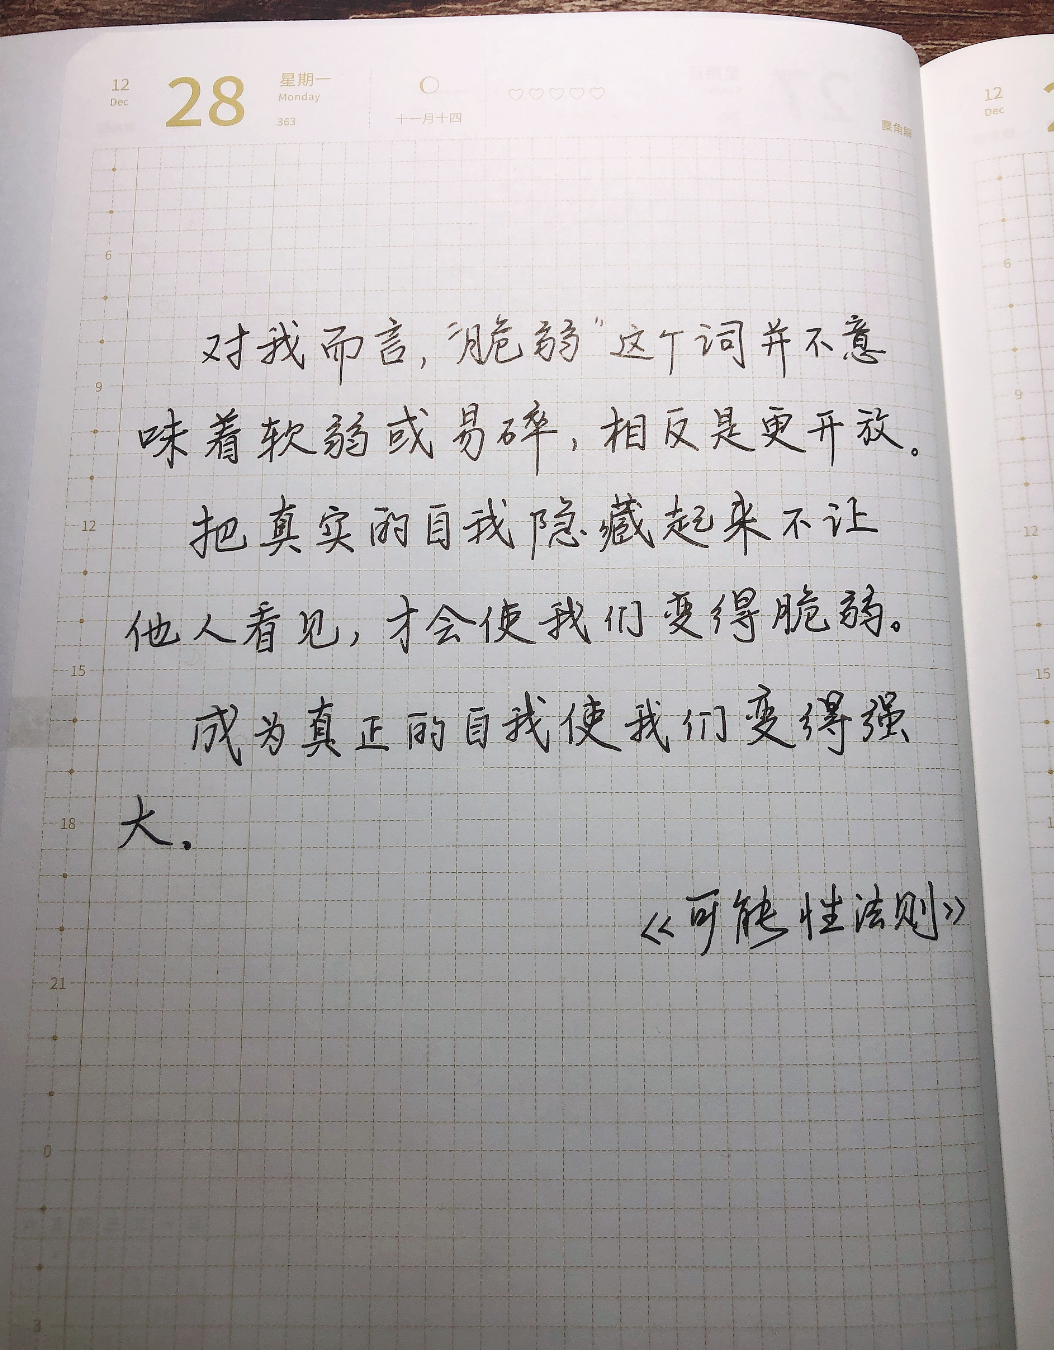 12 28 星期一 12
Dec Monday Dec
363 十一月十四
6
6
对我而言，“脆弱”这个词并不意
9
9
味着软弱或易碎，相反是更开放。
12
12
把真实的自我隐藏起来不让
他人看见，才会使我们变得脆弱。
15
15
成为真正的自我使我们变得强
18
大.
《可能性法则》
21
0
3